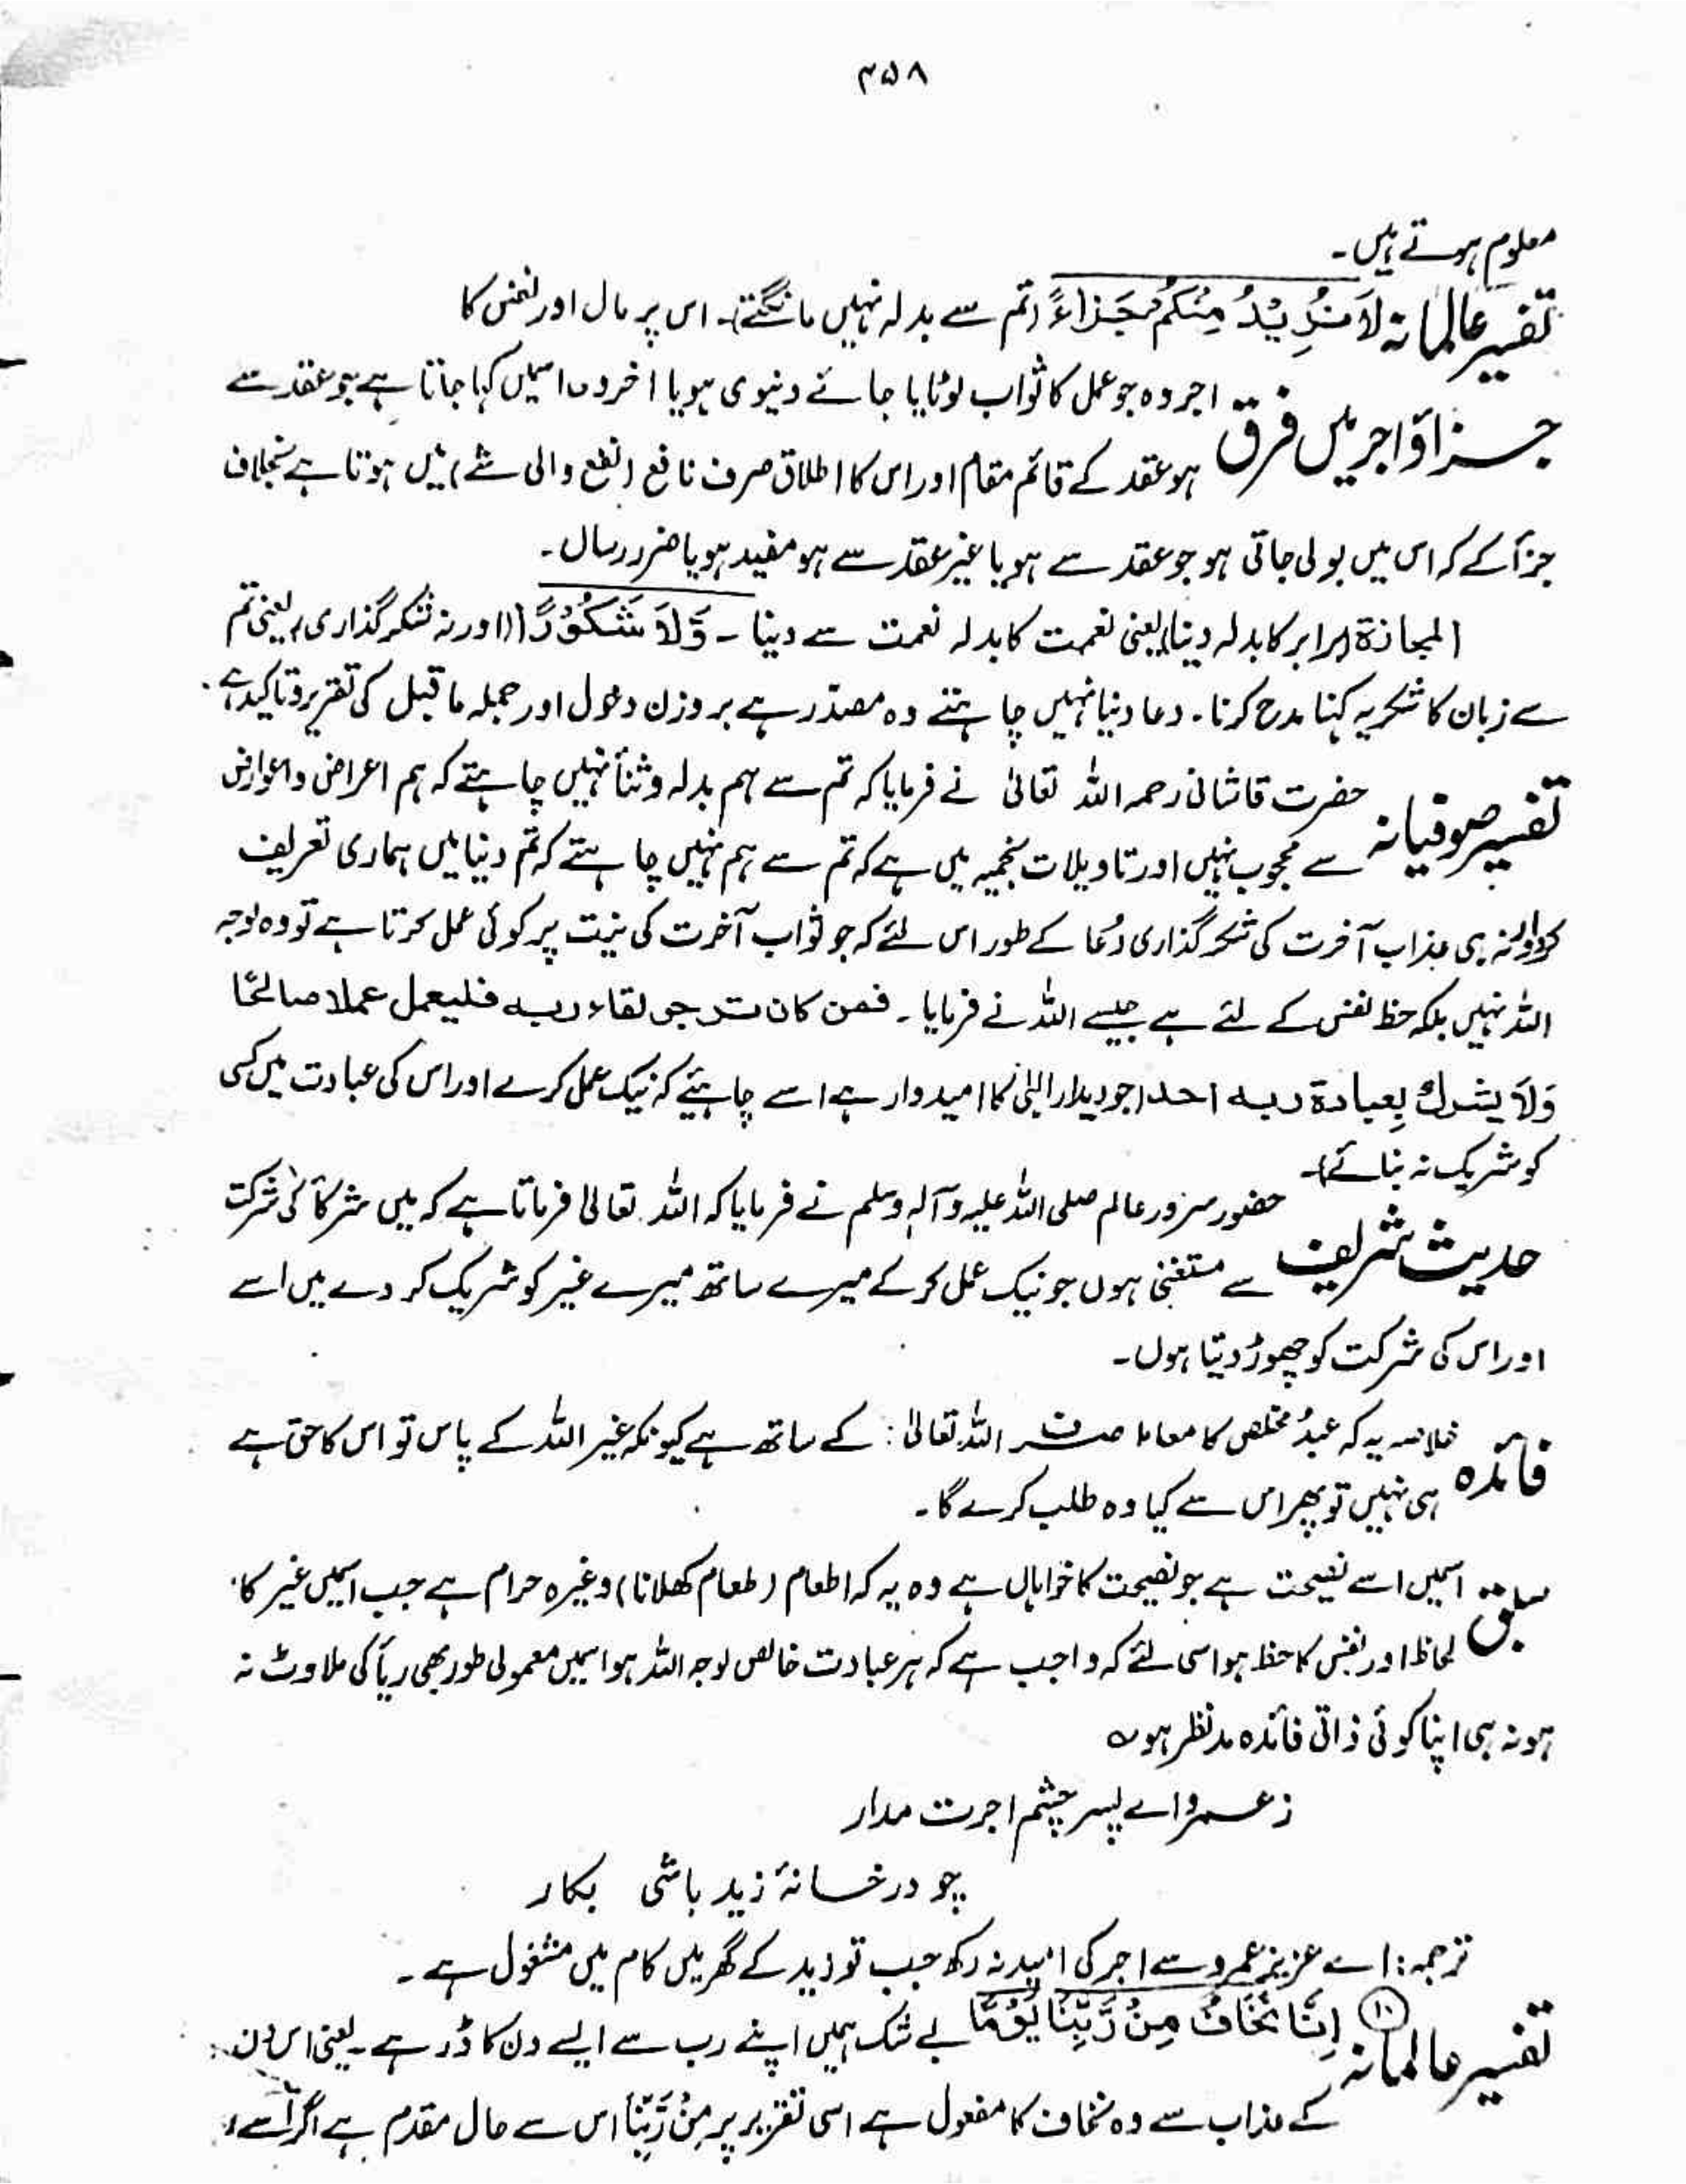 ۳۵۸
معلوم ہوتے ہیں۔
تفسیر عالمانہ لَا نُرِيْدُ مِنْكُمْ جَزَاءً (تم سے بدلہ نہیں مانگتے)۔ اس پر مال اور نفس کا
جزاؤ اجر میں فرق اجر وہ جو عمل کا ثواب لوٹایا جائے دنیوی ہو یا اخروی اسمیں کہا جاتا ہے جو عقد سے
ہو عقد کے قائم مقام اور اس کا اطلاق صرف نافع (نفع والی شے) میں ہوتا ہے بخلاف
جزأ کے کہ اس میں بولی جاتی ہو جو عقد سے ہو یا غیر عقد سے ہو مفید ہو یا ضرر رساں۔
المجازۃ (برابر کا بدلہ دینا) یعنی نعمت کا بدلہ نعمت سے دینا۔ وَّلَا شَكُوْرًا (اور نہ شکر گذاری) یعنی تم
سے زبان کا شکریہ کہنا مدح کرنا۔ دعا دینا نہیں چاہتے وہ مصدر ہے بروزن دخول اور جملہ ماقبل کی تقریر و تاکید ہے۔
تفسیر صوفیانہ حضرت قاشانی رحمہ اللہ تعالیٰ نے فرمایا کہ تم سے ہم بدلہ و ثنأ نہیں چاہتے کہ ہم اعراض و اعواض
سے محجوب نہیں اور تاویلات نجمیہ میں ہے کہ تم سے ہم نہیں چاہتے کہ تم دنیا میں ہماری تعریف
کرو اور نہ ہی عذاب آخرت کی شکر گذاری دُعا کے طور اس لئے کہ جو ثواب آخرت کی نیت پر کوئی عمل کرتا ہے تو وہ لوجہ
اللہ نہیں بلکہ حظ نفس کے لئے ہے جیسے اللہ نے فرمایا۔ فمن کان یرجی لقاء ربہ فلیعمل عملا صالحًا
وَلَا یشرك بِعبادة ربه احد (جو دیدار الہٰی کا امیدوار ہے اسے چاہئیے کہ نیک عمل کرے اور اس کی عبادت میں کسی
کو شریک نہ بنائے)۔
حدیث شریف حضور سرور عالم صلی اللہ علیہ وآلہٖ وسلم نے فرمایا کہ اللہ تعالیٰ فرماتا ہے کہ میں شرکأ کی شرکت
سے مستغنی ہوں جو نیک عمل کر کے میرے ساتھ میرے غیر کو شریک کر دے میں اسے
اور اس کی شرکت کو چھوڑ دیتا ہوں۔
فائدہ خلاصہ یہ کہ عبدُ مخلص کا معاملہ صرف اللہ تعالیٰ کے ساتھ ہے کیونکہ غیر اللہ کے پاس تو اس کا حق ہے
ہی نہیں تو پھر اس سے کیا وہ طلب کرے گا۔
سبق اسمیں اسے نصیحت ہے جو نصیحت کا خواہاں ہے وہ یہ کہ اطعام (طعام کھلانا) وغیرہ حرام ہے جب اسمیں غیر کا
لحاظ اور نفس کا حظ ہو اسی لئے کہ واجب ہے کہ ہر عبادت خالص لوجہ اللہ ہو اسمیں معمولی طور بھی ریأ کی ملاوٹ نہ
ہو نہ ہی اپنا کوئی ذاتی فائدہ مدنظر ہو ؎
ز عمرو اے پسر چشم اجرت مدار
چو در خانۂ زید باشی بکار
ترجمہ: اے عزیز عمرو سے اجر کی امید نہ رکھ جب تو زید کے گھر میں کام میں مشغول ہے۔
تفسیر عالمانہ ⑩ اِنَّا نَخَافُ مِنْ رَّبِّنَا يَوْمًا بے شک ہمیں اپنے رب سے ایسے دن کا ڈر ہے۔ یعنی اس دن
کے عذاب سے وہ نخاف کا مفعول ہے اسی تقریر پر مِنْ رَّبِّنَا اس سے حال مقدم ہے اگر اسے